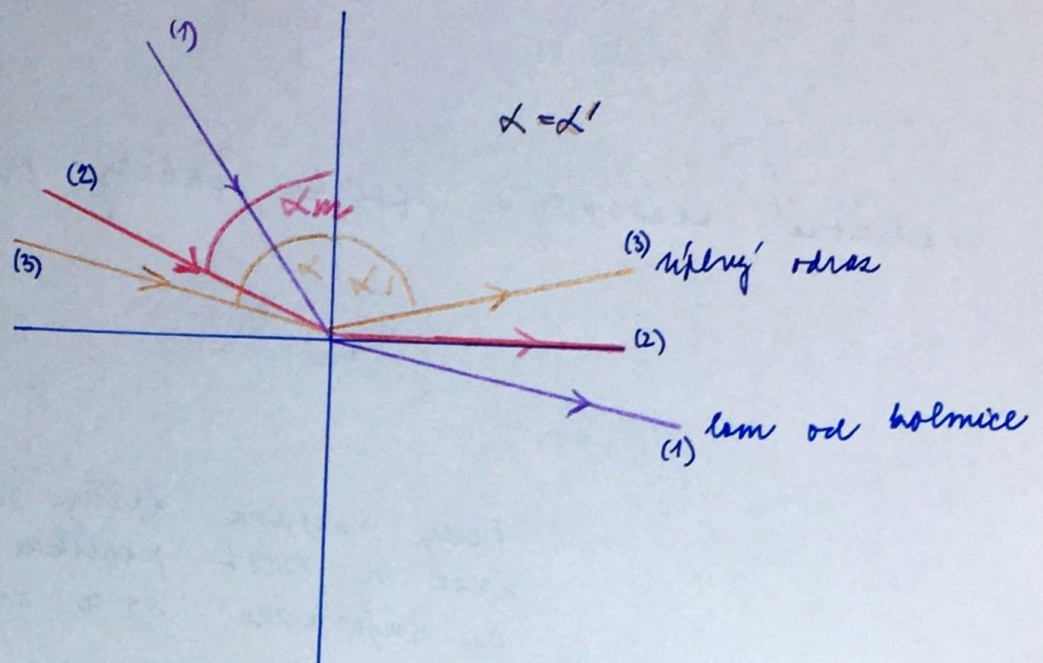 (1)
α = α'
(2)
αm
(3)
α α'
(3) úplný odraz
(2)
(1) lom od kolmice